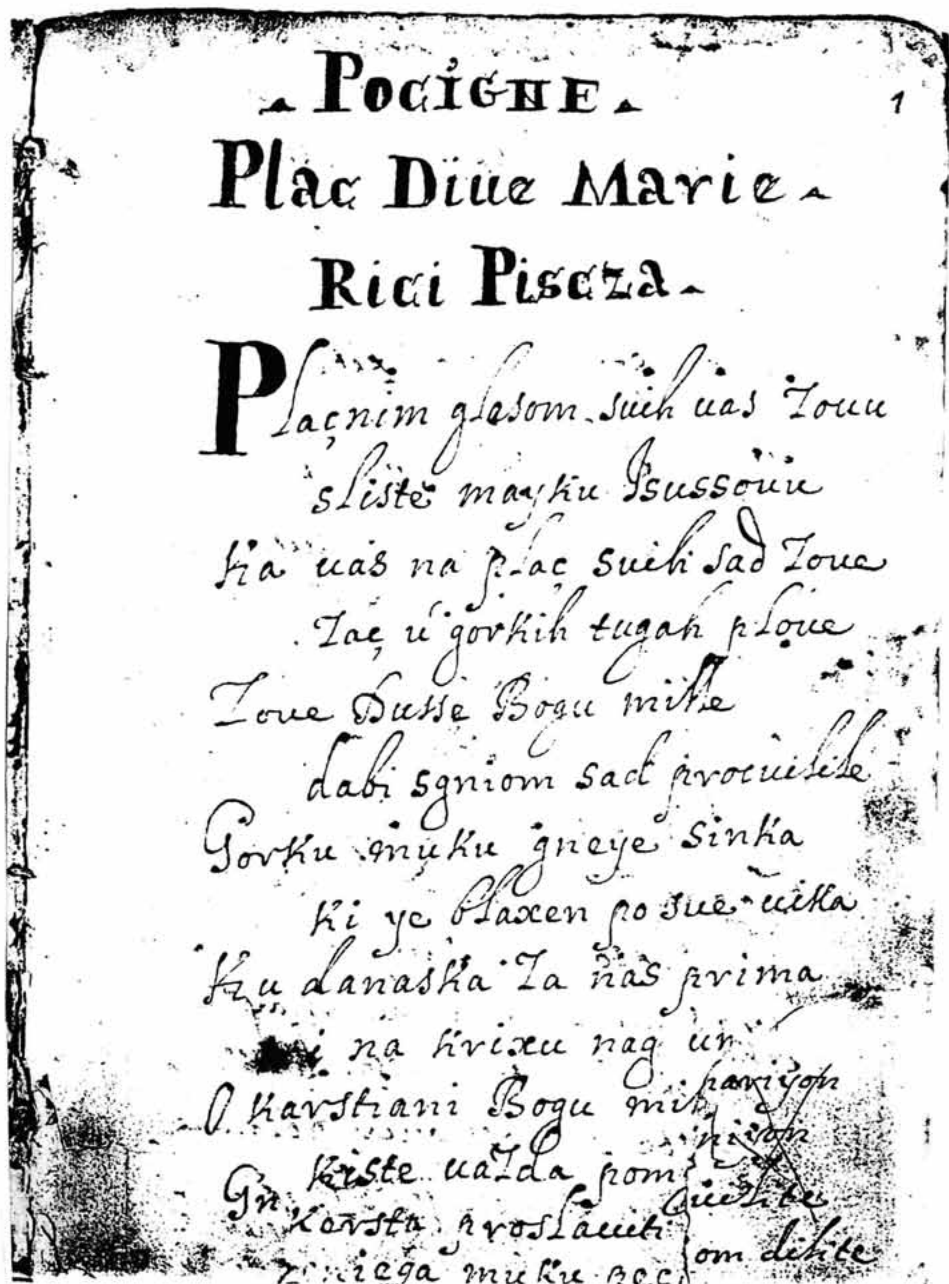 POCIGNE
1
Plaç Diue Marie
Rici Piscza
Plaçnim glasom suih uas Zouu
sliste mayku Isussouu
Ka uas na plaç suih sad Zoue
Zaç u gorkih tugah ploue
Zoue Dusse Bogu mille
dabi sgniom sad procuilile
Gorku muku gneye sinka
ki ye blaxen po sue uika
Ku danaska Za nas prima
i na krixu nag
O karstiani Bogu
kiste uaZda
proslauiti
cuilite
om dilite
muku